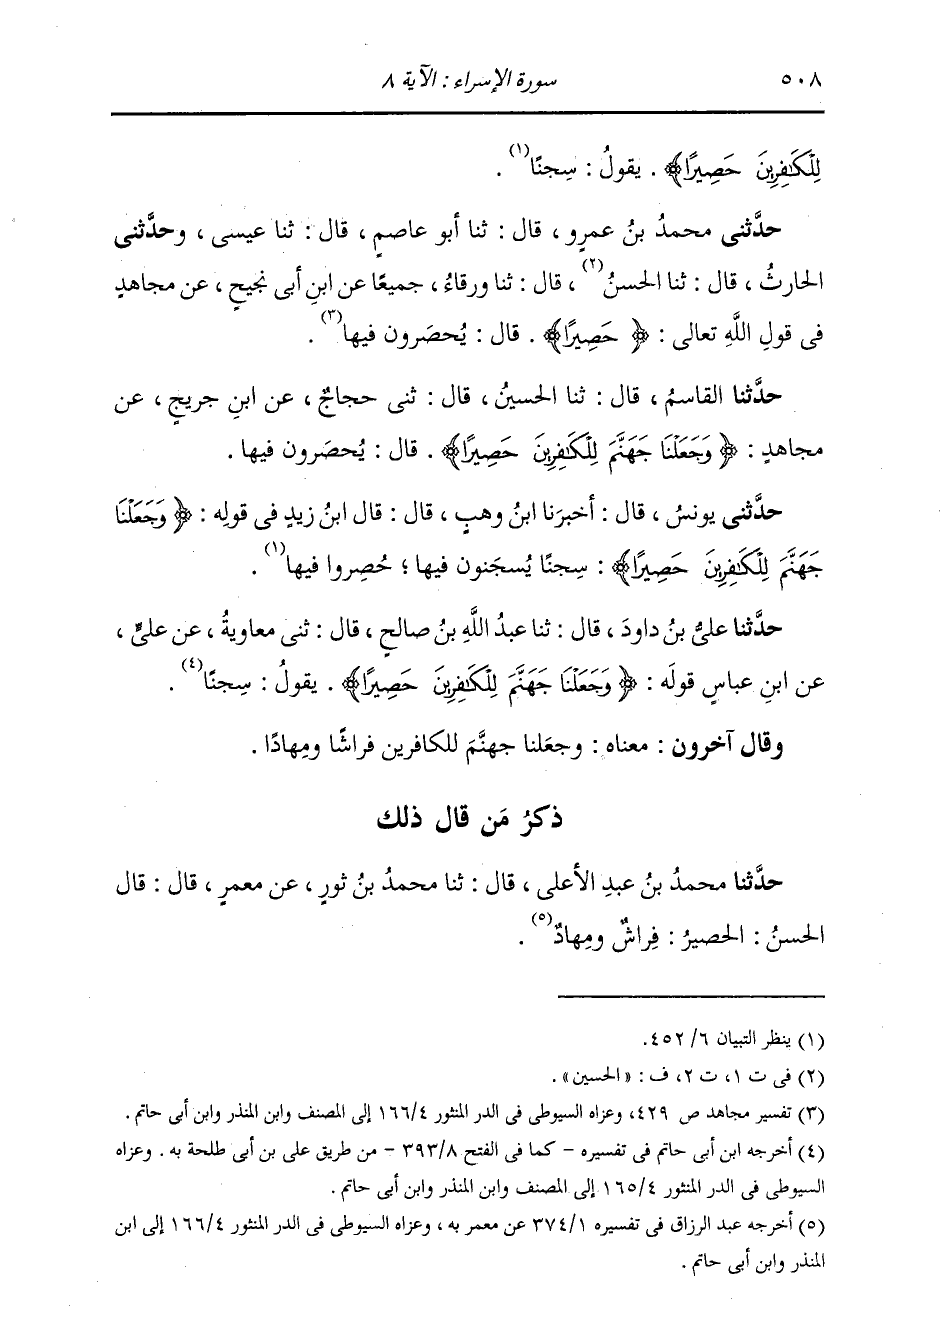 ٥٠٨ سورة الإسراء : الآية ٨
لِلْكَٰفِرِينَ حَصِيرًا﴾ . يقولُ : سِجنًا(١) .
حدَّثنى محمدُ بنُ عمرٍو ، قال : ثنا أبو عاصمٍ ، قال : ثنا عيسى ، وحدَّثنى
الحارثُ ، قال : ثنا الحسنُ(٢) ، قال : ثنا ورقاءُ ، جميعًا عن ابنِ أبى نجيحٍ ، عن مجاهدٍ
فى قولِ اللَّهِ تعالى : ﴿ حَصِيرًا﴾ . قال : يُحصَرون فيها(٣) .
حدَّثنا القاسمُ ، قال : ثنا الحسينُ ، قال : ثنى حجاجٌ ، عن ابنِ جريجٍ ، عن
مجاهدٍ : ﴿ وَجَعَلْنَا جَهَنَّمَ لِلْكَٰفِرِينَ حَصِيرًا﴾ . قال : يُحصَرون فيها .
حدَّثنى يونسُ ، قال : أخبرَنا ابنُ وهبٍ ، قال : قال ابنُ زيدٍ فى قولِه : ﴿ وَجَعَلْنَا
جَهَنَّمَ لِلْكَٰفِرِينَ حَصِيرًا﴾ : سِجنًا يُسجَنون فيها ؛ حُصِروا فيها(١) .
حدَّثنا علىُّ بنُ داودَ ، قال : ثنا عبدُ اللَّهِ بنُ صالحٍ ، قال : ثنى معاويةُ ، عن علىٍّ ،
عن ابنِ عباسٍ قولَه : ﴿ وَجَعَلْنَا جَهَنَّمَ لِلْكَٰفِرِينَ حَصِيرًا﴾ . يقولُ : سِجنًا(٤) .
وقال آخرون : معناه : وجعَلنا جهنَّمَ للكافرين فراشًا ومِهادًا .
ذكرُ مَن قال ذلك
حدَّثنا محمدُ بنُ عبدِ الأعلى ، قال : ثنا محمدُ بنُ ثورٍ ، عن معمرٍ ، قال : قال
الحسنُ : الحصيرُ : فِراشٌ ومِهادٌ(٥) .
(١) ينظر التبيان ٦/ ٤٥٢.
(٢) فى ت ١، ت ٢، ف : «الحسين» .
(٣) تفسير مجاهد ص ٤٢٩، وعزاه السيوطى فى الدر المنثور ١٦٦/٤ إلى المصنف وابن المنذر وابن أبى حاتم .
(٤) أخرجه ابن أبى حاتم فى تفسيره – كما فى الفتح ٣٩٣/٨ – من طريق على بن أبى طلحة به . وعزاه
السيوطى فى الدر المنثور ١٦٥/٤ إلى المصنف وابن المنذر وابن أبى حاتم .
(٥) أخرجه عبد الرزاق فى تفسيره ٣٧٤/١ عن معمر به ، وعزاه السيوطى فى الدر المنثور ١٦٦/٤ إلى ابن
المنذر وابن أبى حاتم .